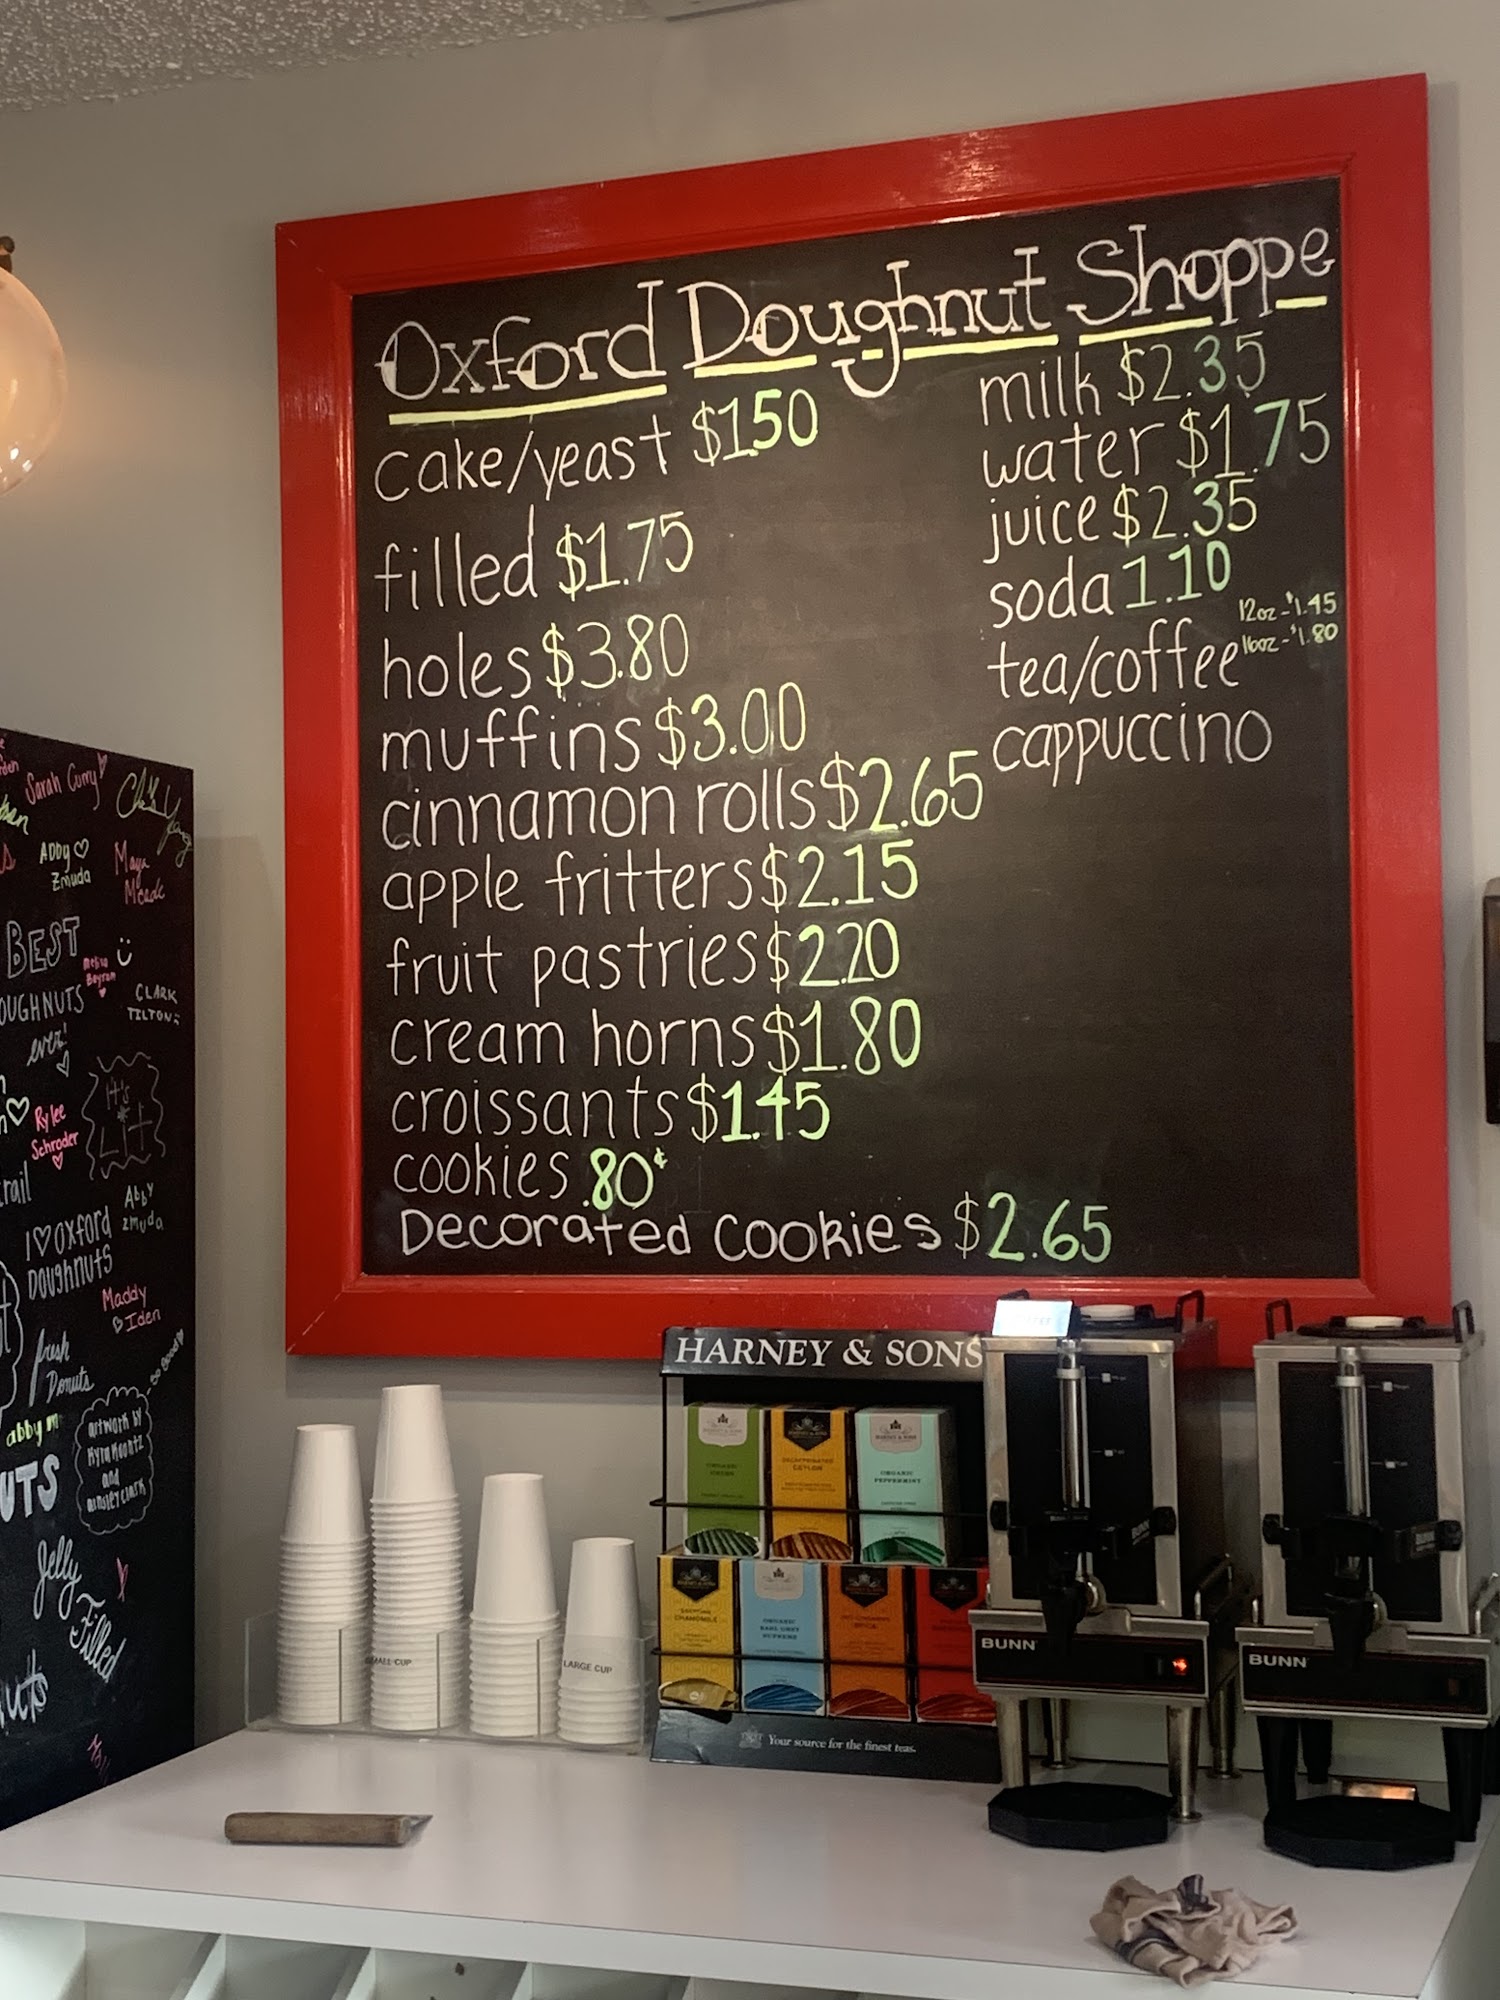 Oxford Doughnut Shoppe
cake/yeast $1.50
filled $1.75
holes $3.80
muffins $3.00
cinnamon rolls $2.65
apple fritters $2.15
fruit pastries $2.20
cream horns $1.80
croissants $1.45
cookies .80¢
Decorated Cookies $2.65
milk $2.35
water $1.75
juice $2.35
soda 1.10
12oz - $1.45
16oz - $1.80
tea/coffee
cappuccino
Sarah Curry
Abby
Zmuda
Maya
Meade
BEST
OUGHNUTS
ever!
CLARK
TILTON
It's
Lit
Rylee
Schroder
Abby
Zmuda
I ♡ Oxford
Doughnuts
Maddy
Iden
fresh
Donuts
so Good
abby m
artwork by
and
UTS
Jelly
Filled
HARNEY & SONS
ORGANIC
GREEN
DECAFFEINATED
CEYLON
ORGANIC
PEPPERMINT
CHAMOMILE
ORGANIC
EARL GREY
SUPREME
SMALL CUP
LARGE CUP
Your source for the finest teas.
BUNN
BUNN
BUNN